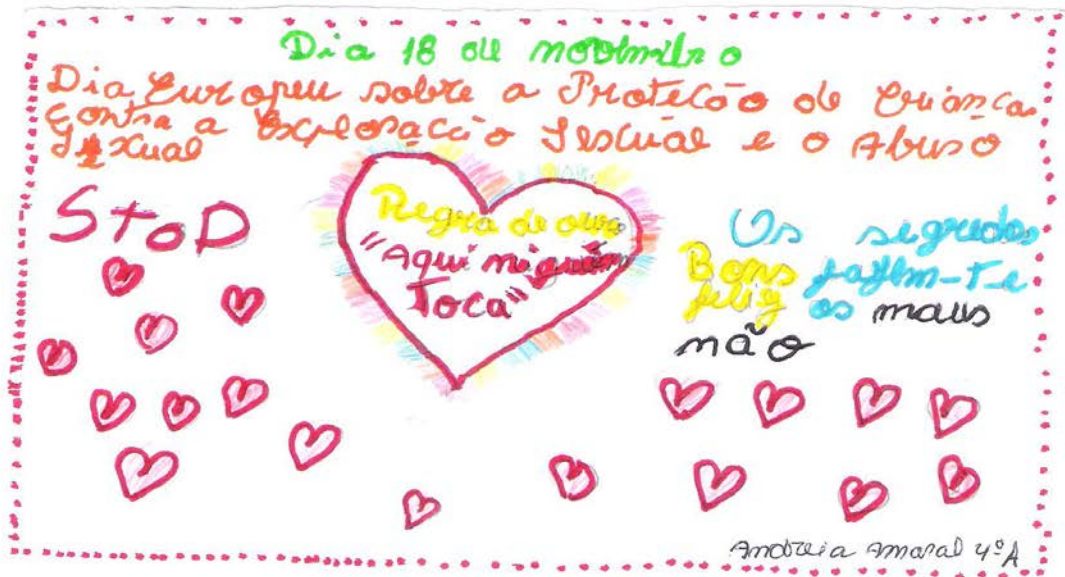 Dia 18 de novembro
Dia Europeu sobre a Proteção de Crianças
Contra a Exploração Sexual e o Abuso
Sexual
StoP
Regra de ouro
"Aqui ninguém
Toca"
Os segredos
Bons fazem-Te
feliz os maus
não
Andreia Amaral 4ºA